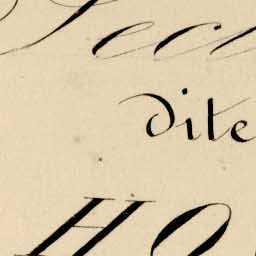 Sec
dite
HO